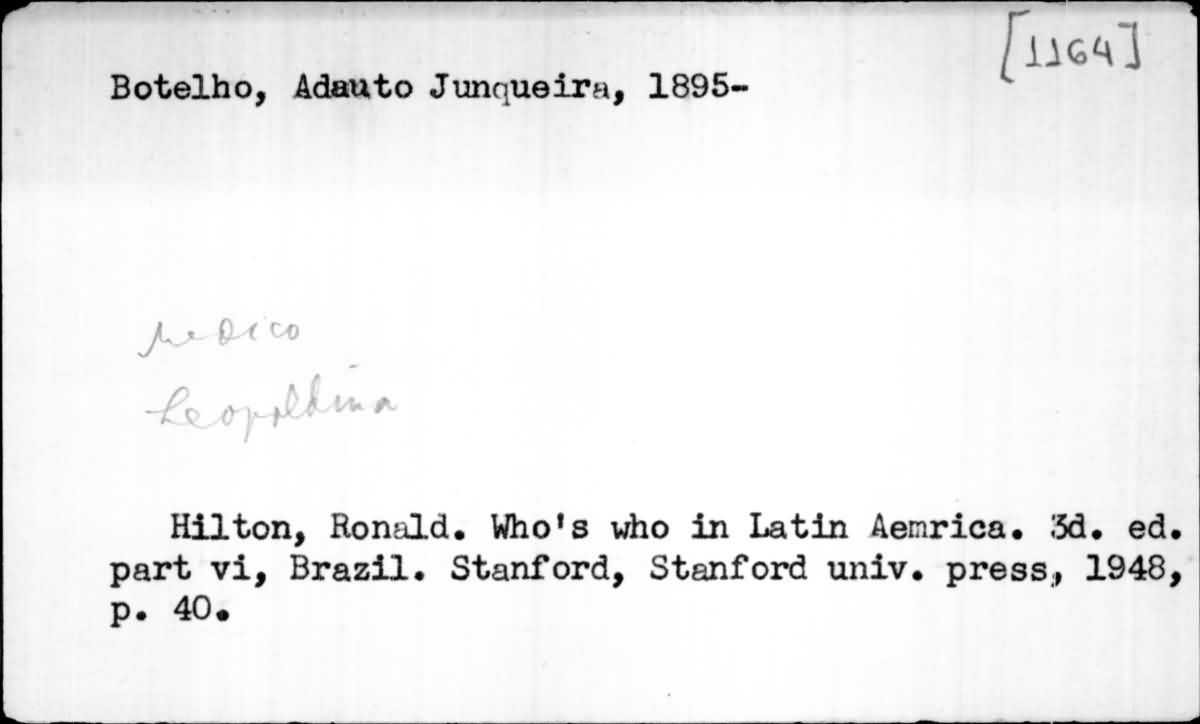 [1164]
Botelho, Adauto Junqueira, 1895-
Medico
Leopoldina
Hilton, Ronald. Who's who in Latin Aemrica. 3d. ed.
part vi, Brazil. Stanford, Stanford univ. press, 1948,
p. 40.